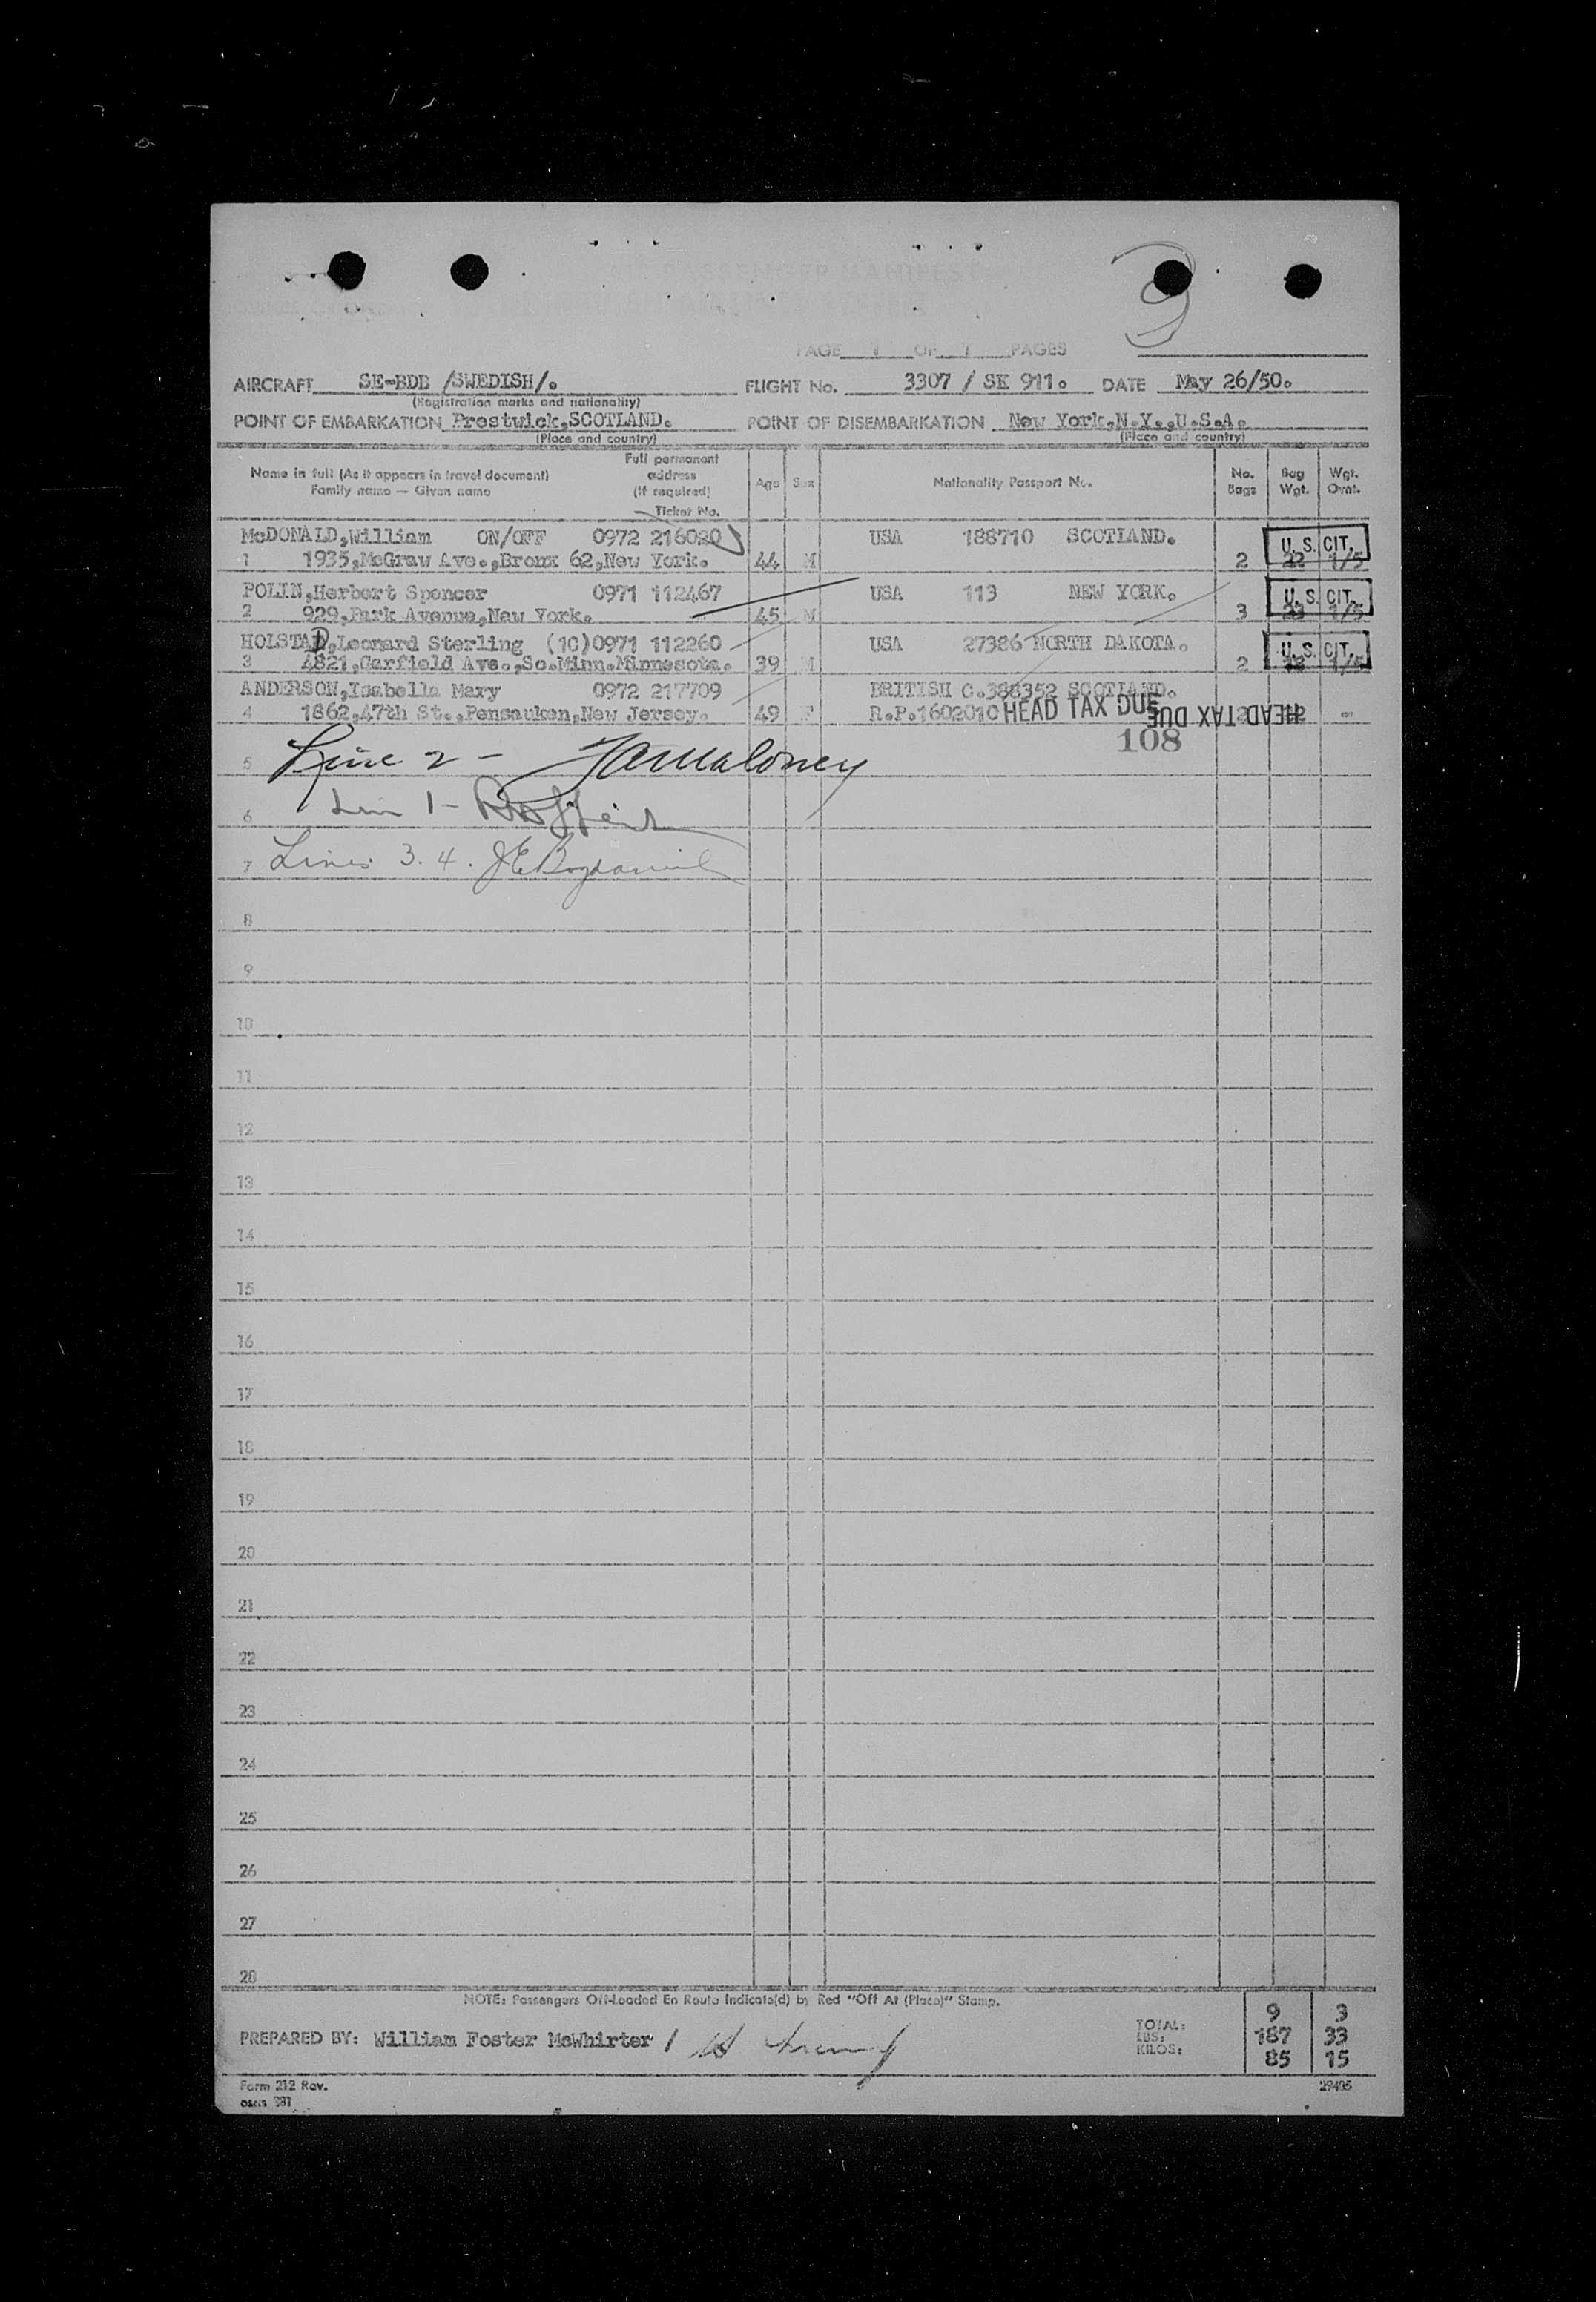 AIR PASSENGER MANIFEST
PAGE 1 OF 1 PAGES
AIRCRAFT SE-BDB /SWEDISH/. FLIGHT No. 3307 / SK 911. DATE May 26/50.
(Registration marks and nationality)
POINT OF EMBARKATION Prestwick,SCOTLAND. POINT OF DISEMBARKATION New York,N.Y.,U.S.A.
(Place and country) (Place and country)
Name in full (As it appears in travel document) Family name — Given name Full permanent address (If required) Ticket No. Age Sex Nationality Passport No. No. Bags Bag Wgt. Wgt. Ovnt.
McDONALD,William ON/OFF 0972 216020 USA 188710 SCOTLAND. U. S. CIT.
1 1935,McGraw Ave.,Bronx 62,New York. 44 M 2 22 1/5
POLIN,Herbert Spencer 0971 112467 USA 113 NEW YORK. U. S. CIT.
2 929,Park Avenue,New York. 45 M 3 23 1/5
HOLSTAD,Leonard Sterling (1C)0971 112260 USA 27386 NORTH DAKOTA. U. S. CIT.
3 4821,Garfield Ave.,So.Minn.Minnesota. 39 M 2 1/5
ANDERSON,Isabella Mary 0972 217709 BRITISH C.388352 SCOTLAND.
4 1862,47th St.,Pensauken,New Jersey. 49 F R.P.1602010 HEAD TAX DUE HEAD TAX DUE -
108
5 Line 2 - Maloney
6 Lin 1 -
7 Lines 3. 4. J E
8
9
10
11
12
13
14
15
16
17
18
19
20
21
22
23
24
25
26
27
28
NOTE: Passengers Off-Loaded En Route Indicate(d) by Red "Off At (Place)" Stamp.
PREPARED BY: William Foster McWhirter /
TOTAL: 9 3
LBS: 187 33
KILOS: 85 15
Form 212 Rev. 29405